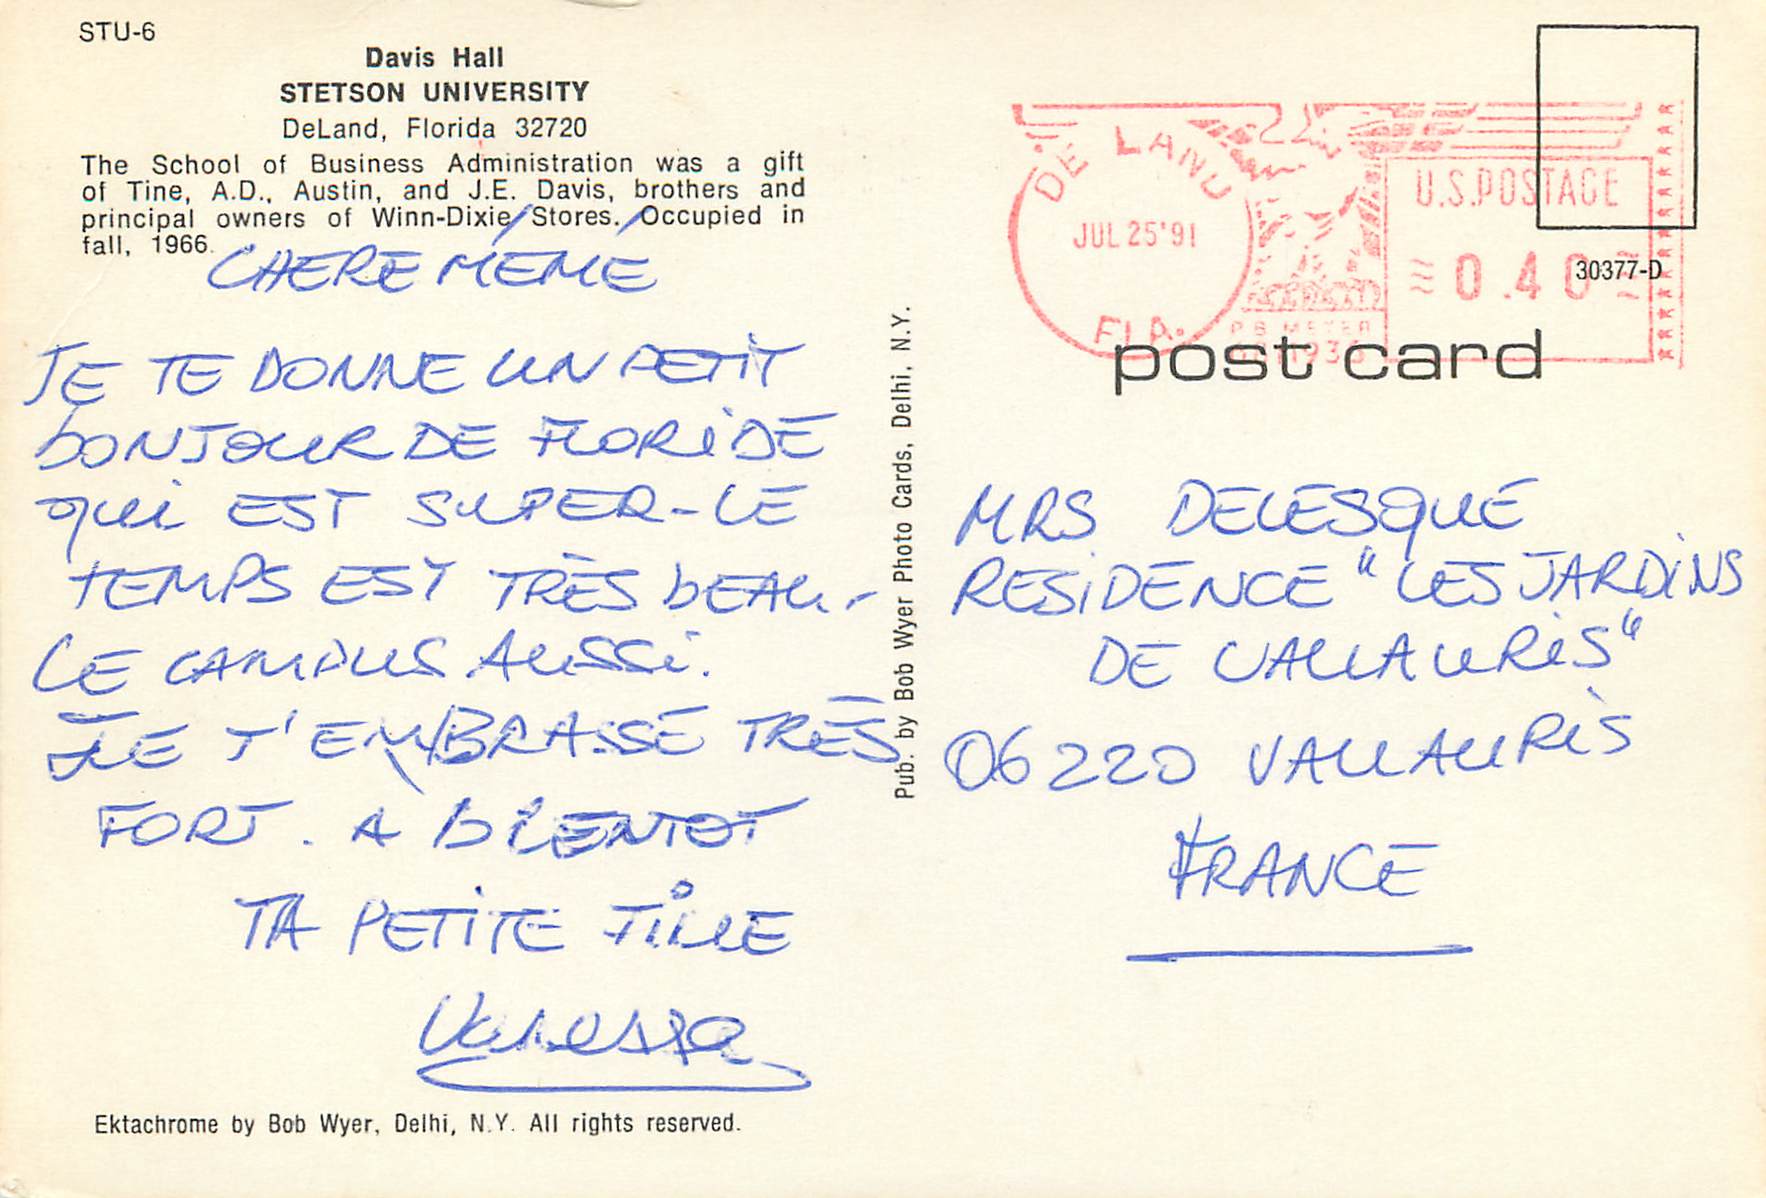 STU-6
Davis Hall
STETSON UNIVERSITY
DeLand, Florida 32720
The School of Business Administration was a gift
of Tine, A.D., Austin, and J.E. Davis, brothers and
principal owners of Winn-Dixie Stores. Occupied in
fall, 1966.
CHERE MÉMÉ
JE TE DONNE UN PETIT
BONJOUR DE FLORIDE
QUI EST SUPER-LE
TEMPS EST TRÈS BEAU.-
LE CAMPUS AUSSI.
JE T'EMBRASSE TRÈS
FORT. A BIENTOT
TA PETITE FILLE
Vanessa
Ektachrome by Bob Wyer, Delhi, N.Y. All rights reserved.
Pub. by Bob Wyer Photo Cards, Delhi, N.Y.
DE LAND
JUL 25'91
FLA.
U.S.POSTAGE
0.40
P B METER
30377-D
post card
MRS DELESQUE
RESIDENCE "LES JARDINS
DE VALLAURIS"
06220 VALLAURIS
FRANCE